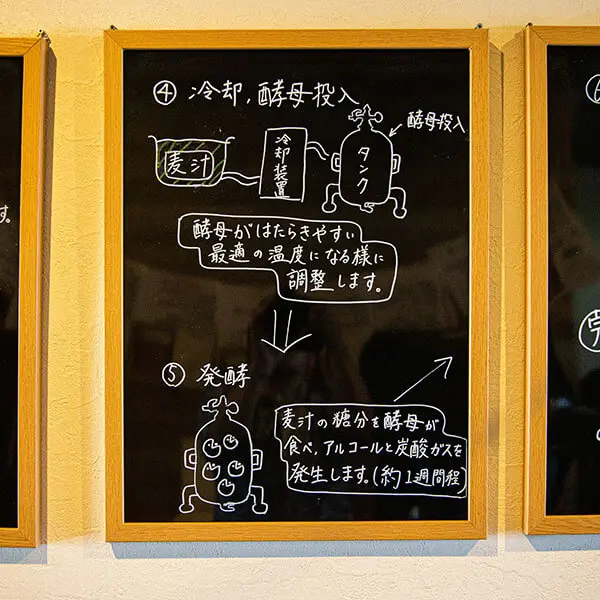 ④ 冷却,酵母投入
酵母投入
麦汁
冷却装置
タンク
酵母がはたらきやすい
最適の温度になる様に
調整します。
⑤ 発酵
麦汁の糖分を酵母が
食べ,アルコールと炭酸ガスを
発生します。(約1週間程)
す。